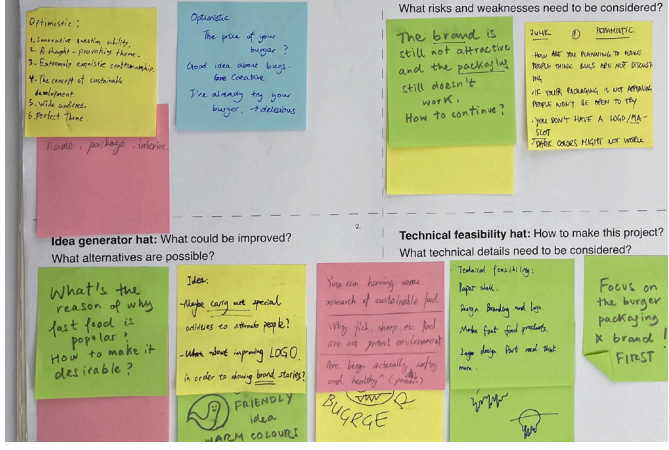 What risks and weaknesses need to be considered?
Optimustic :
1. Innovative question ability.
2. A thought - provoking theme.
3. Extremely exquisite craftsmanship.
4. The concept of sustainable
development.
5. Wide audience.
6. Perfect theme.
name, package, interior.
Optimistic
The price of your
burger ?
Good idea about bugs.
Creative
I've already try your
burger, → delicious
The brand is
still not attractive
and the packaging
still doesn't
work.
How to continue?
PESSIMISTIC
- HOW ARE YOU PLANNING TO MAKE
PEOPLE THINK BUGS ARE NOT DISCUST
ING
• IF YOUR PACKAGING IS NOT APPEALING
PEOPLE WON'T BE OPEN TO TRY
• YOU DON'T HAVE A LOGO/MA-
SCOT
• DARK COLORS MIGHT NOT WORK
2
Idea generator hat: What could be improved?
What alternatives are possible?
Technical feasibility hat: How to make this project?
What technical details need to be considered?
What's the
reason of why
fast food is
popular?
How to make it
desirable ?
Idea:
-Maybe carry out special
activities to attract people?
-What about improving LOGO
in order to showing brand stories?
FRIENDLY
idea
WARM COLOURS
You can
research of sustainable food
Why fish, sheep, etc food
are not protect environment
Are bugs actually
and healthy" (
BUGRGE
Technical feasibility:
Paper shell.
Design Branding and logo
Make fast food products.
Logo design part need think
more.
Focus on
the burger
packaging
& brand !
FIRST